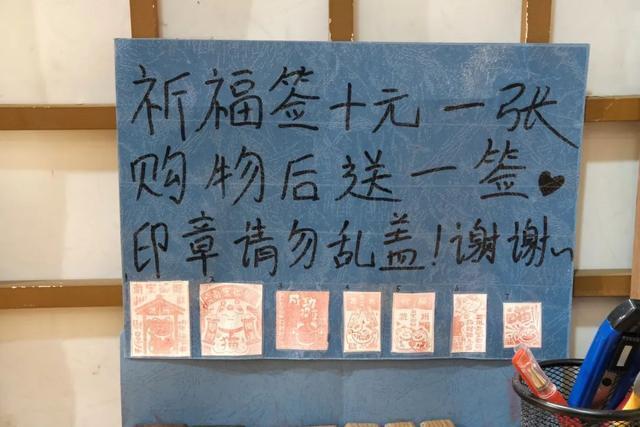 祈福签十元一张
购物后送一签♥
印章请勿乱盖！谢谢~
1 2 3 4 5 6 7